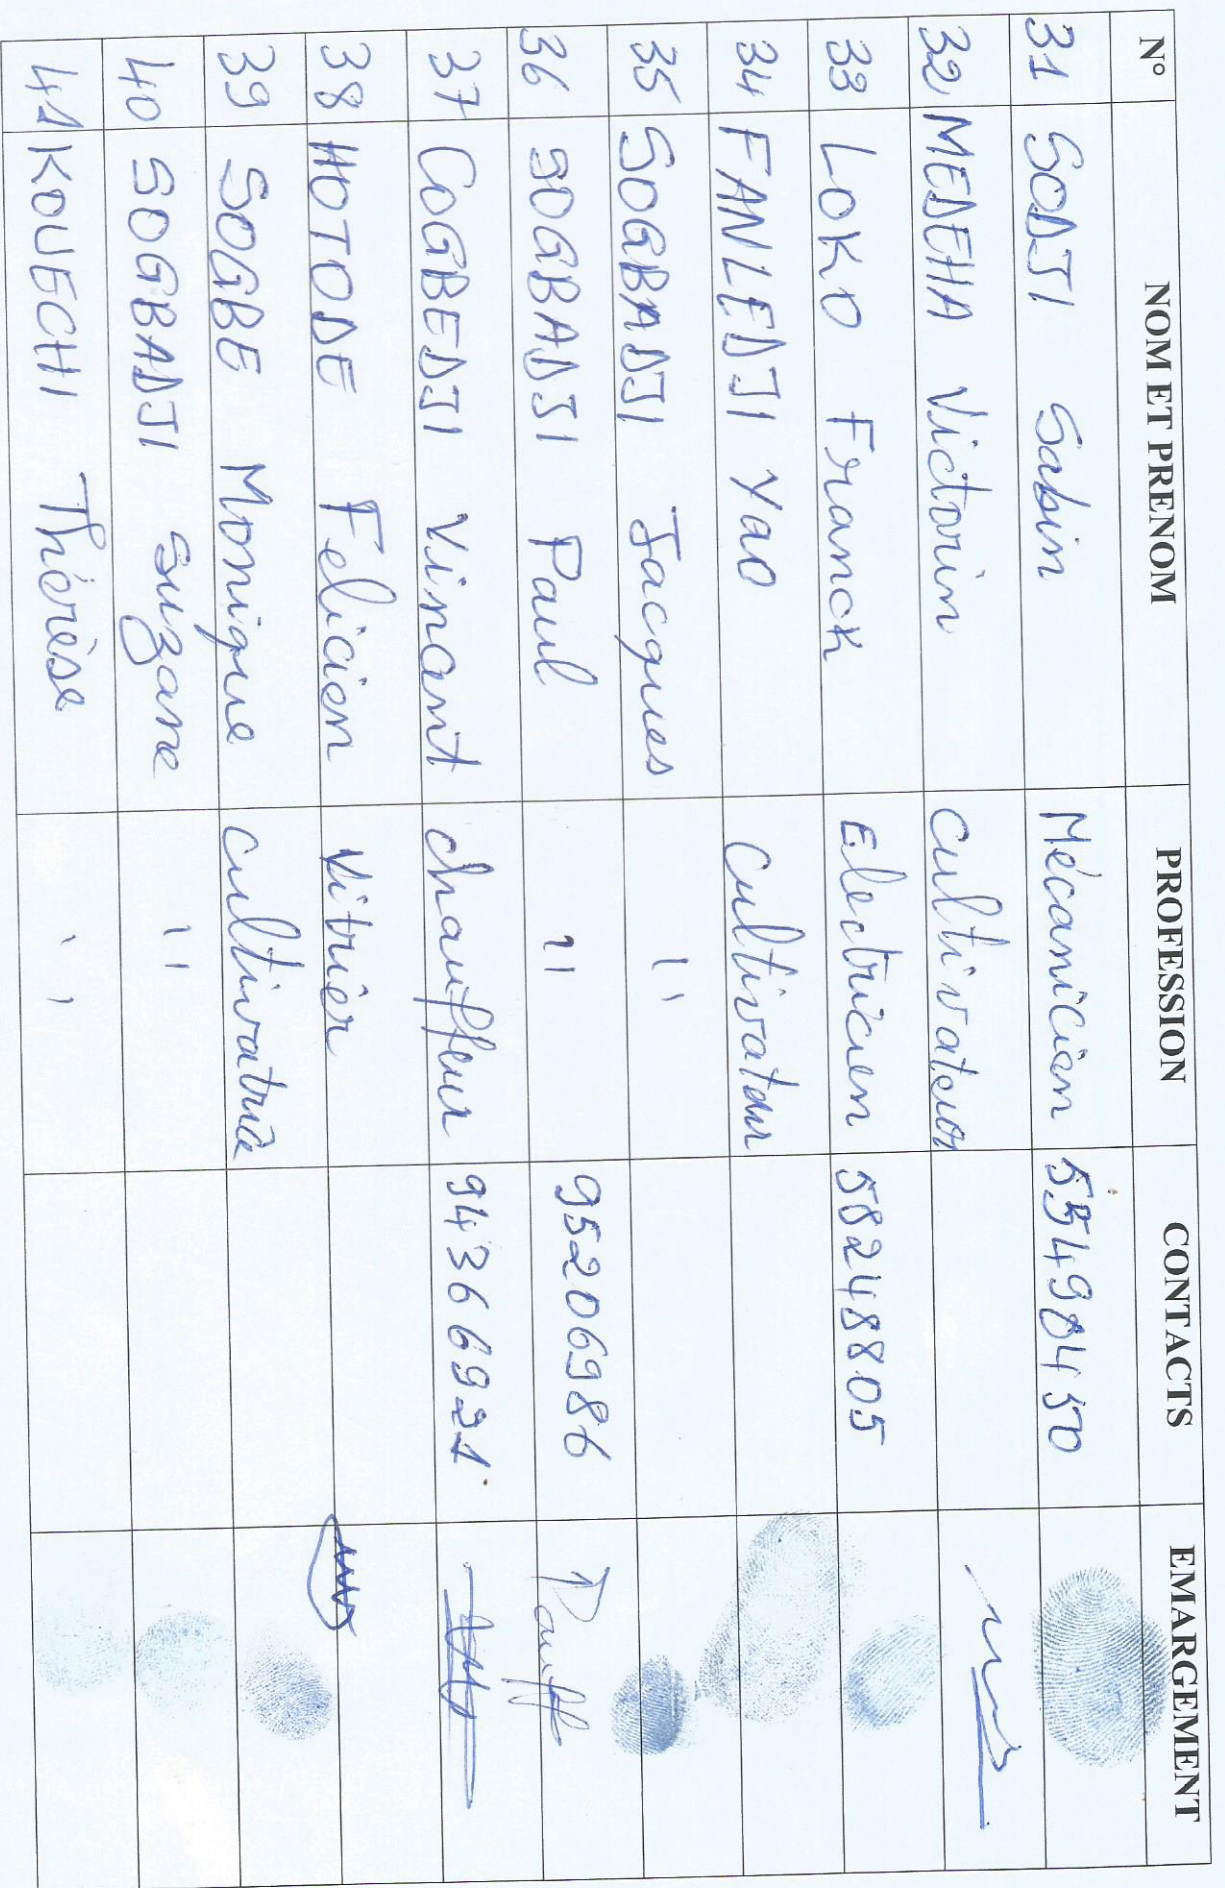 N° NOM ET PRENOM PROFESSION CONTACTS EMARGEMENT
31 SODJI Sabin Mécanicien 55490450
32 MEDEHA Victorin cultivateur
33 LOKO Franck Electricien 58248805
34 FANLEDJI Yao cultivateur
35 SOGBADJI Jacques "
36 SOGBADJI Paul " 95206986
37 COGBEDJI Vincent chauffeur 94366921
38 HOTODE Felicien Vitrier
39 SOGBE Monique cultivatrice
40 SOGBADJI Suzane "
41 KOUECHI Thérèse "